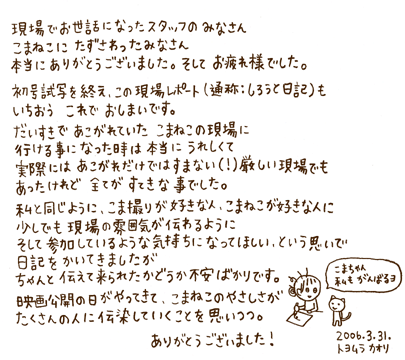 現場でお世話になったスタッフのみなさん
こまねこに たずさわったみなさん
本当にありがとうございました。そして お疲れ様でした。
初号試写を終え、この現場レポート(通称：しろうと日記)も
いちおう これで おしまいです。
だいすきで あこがれていた こまねこの現場に
行ける事になった時は本当に うれしくて
実際には あこがれだけではすまない(!)厳しい現場でも
あったけれど 全てが すてきな 事でした。
私と同じように、こま撮りが好きな人、こまねこが好きな人に
少しでも 現場の雰囲気が伝わるように
そして参加しているような気持ちになってほしい、という思いで
日記をかいてきましたが
ちゃんと伝えて来られたかどうか不安ばかりです。
映画公開の日がやってきて、こまねこのやさしさが
たくさんの人に伝染していくことを思いつつ。
ありがとうございました！
こまちゃん
私もがんばるヨ
2006.3.31.
トヨムラ カオリ